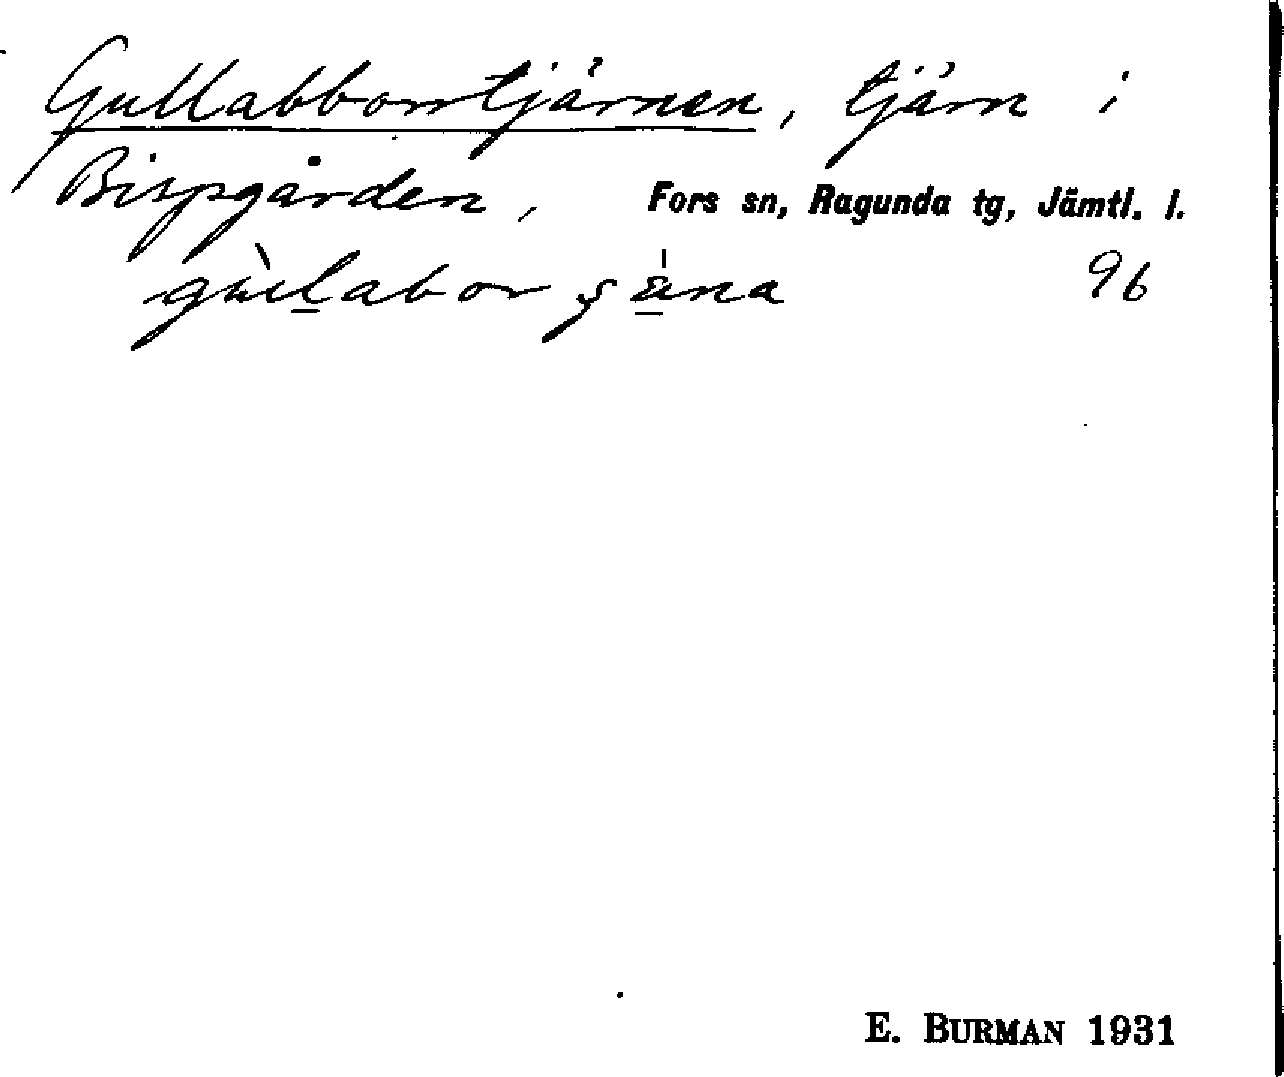 Gullabborrtjärnen, tjärn i
Bispgården, Fors sn, Ragunda tg, Jämtl. l.
96
E. BURMAN 1931